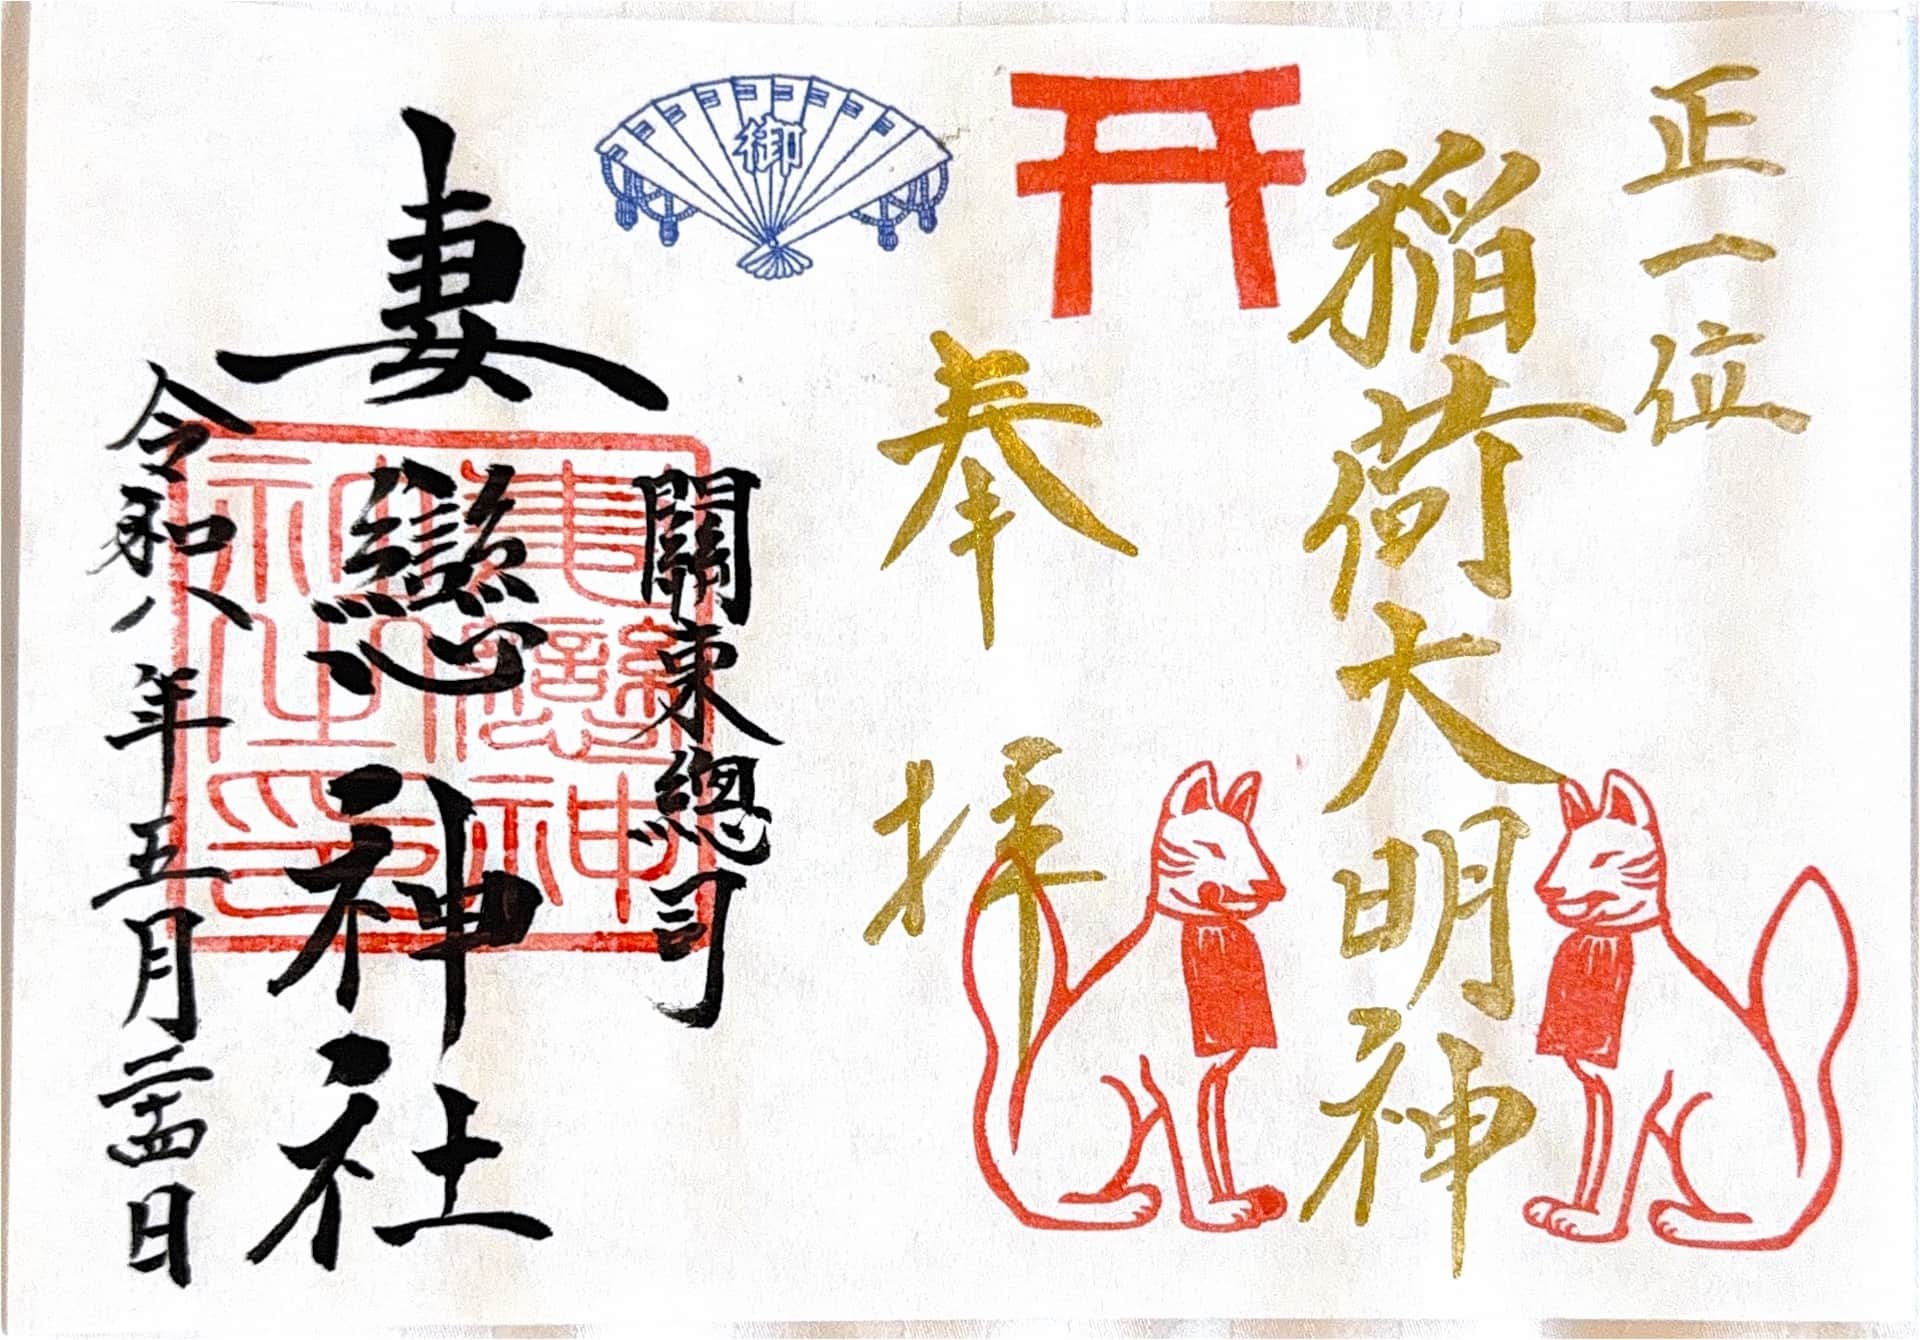 正一位
稲荷大明神
奉拝
御
關東總司
妻戀神社
令和八年五月二十四日